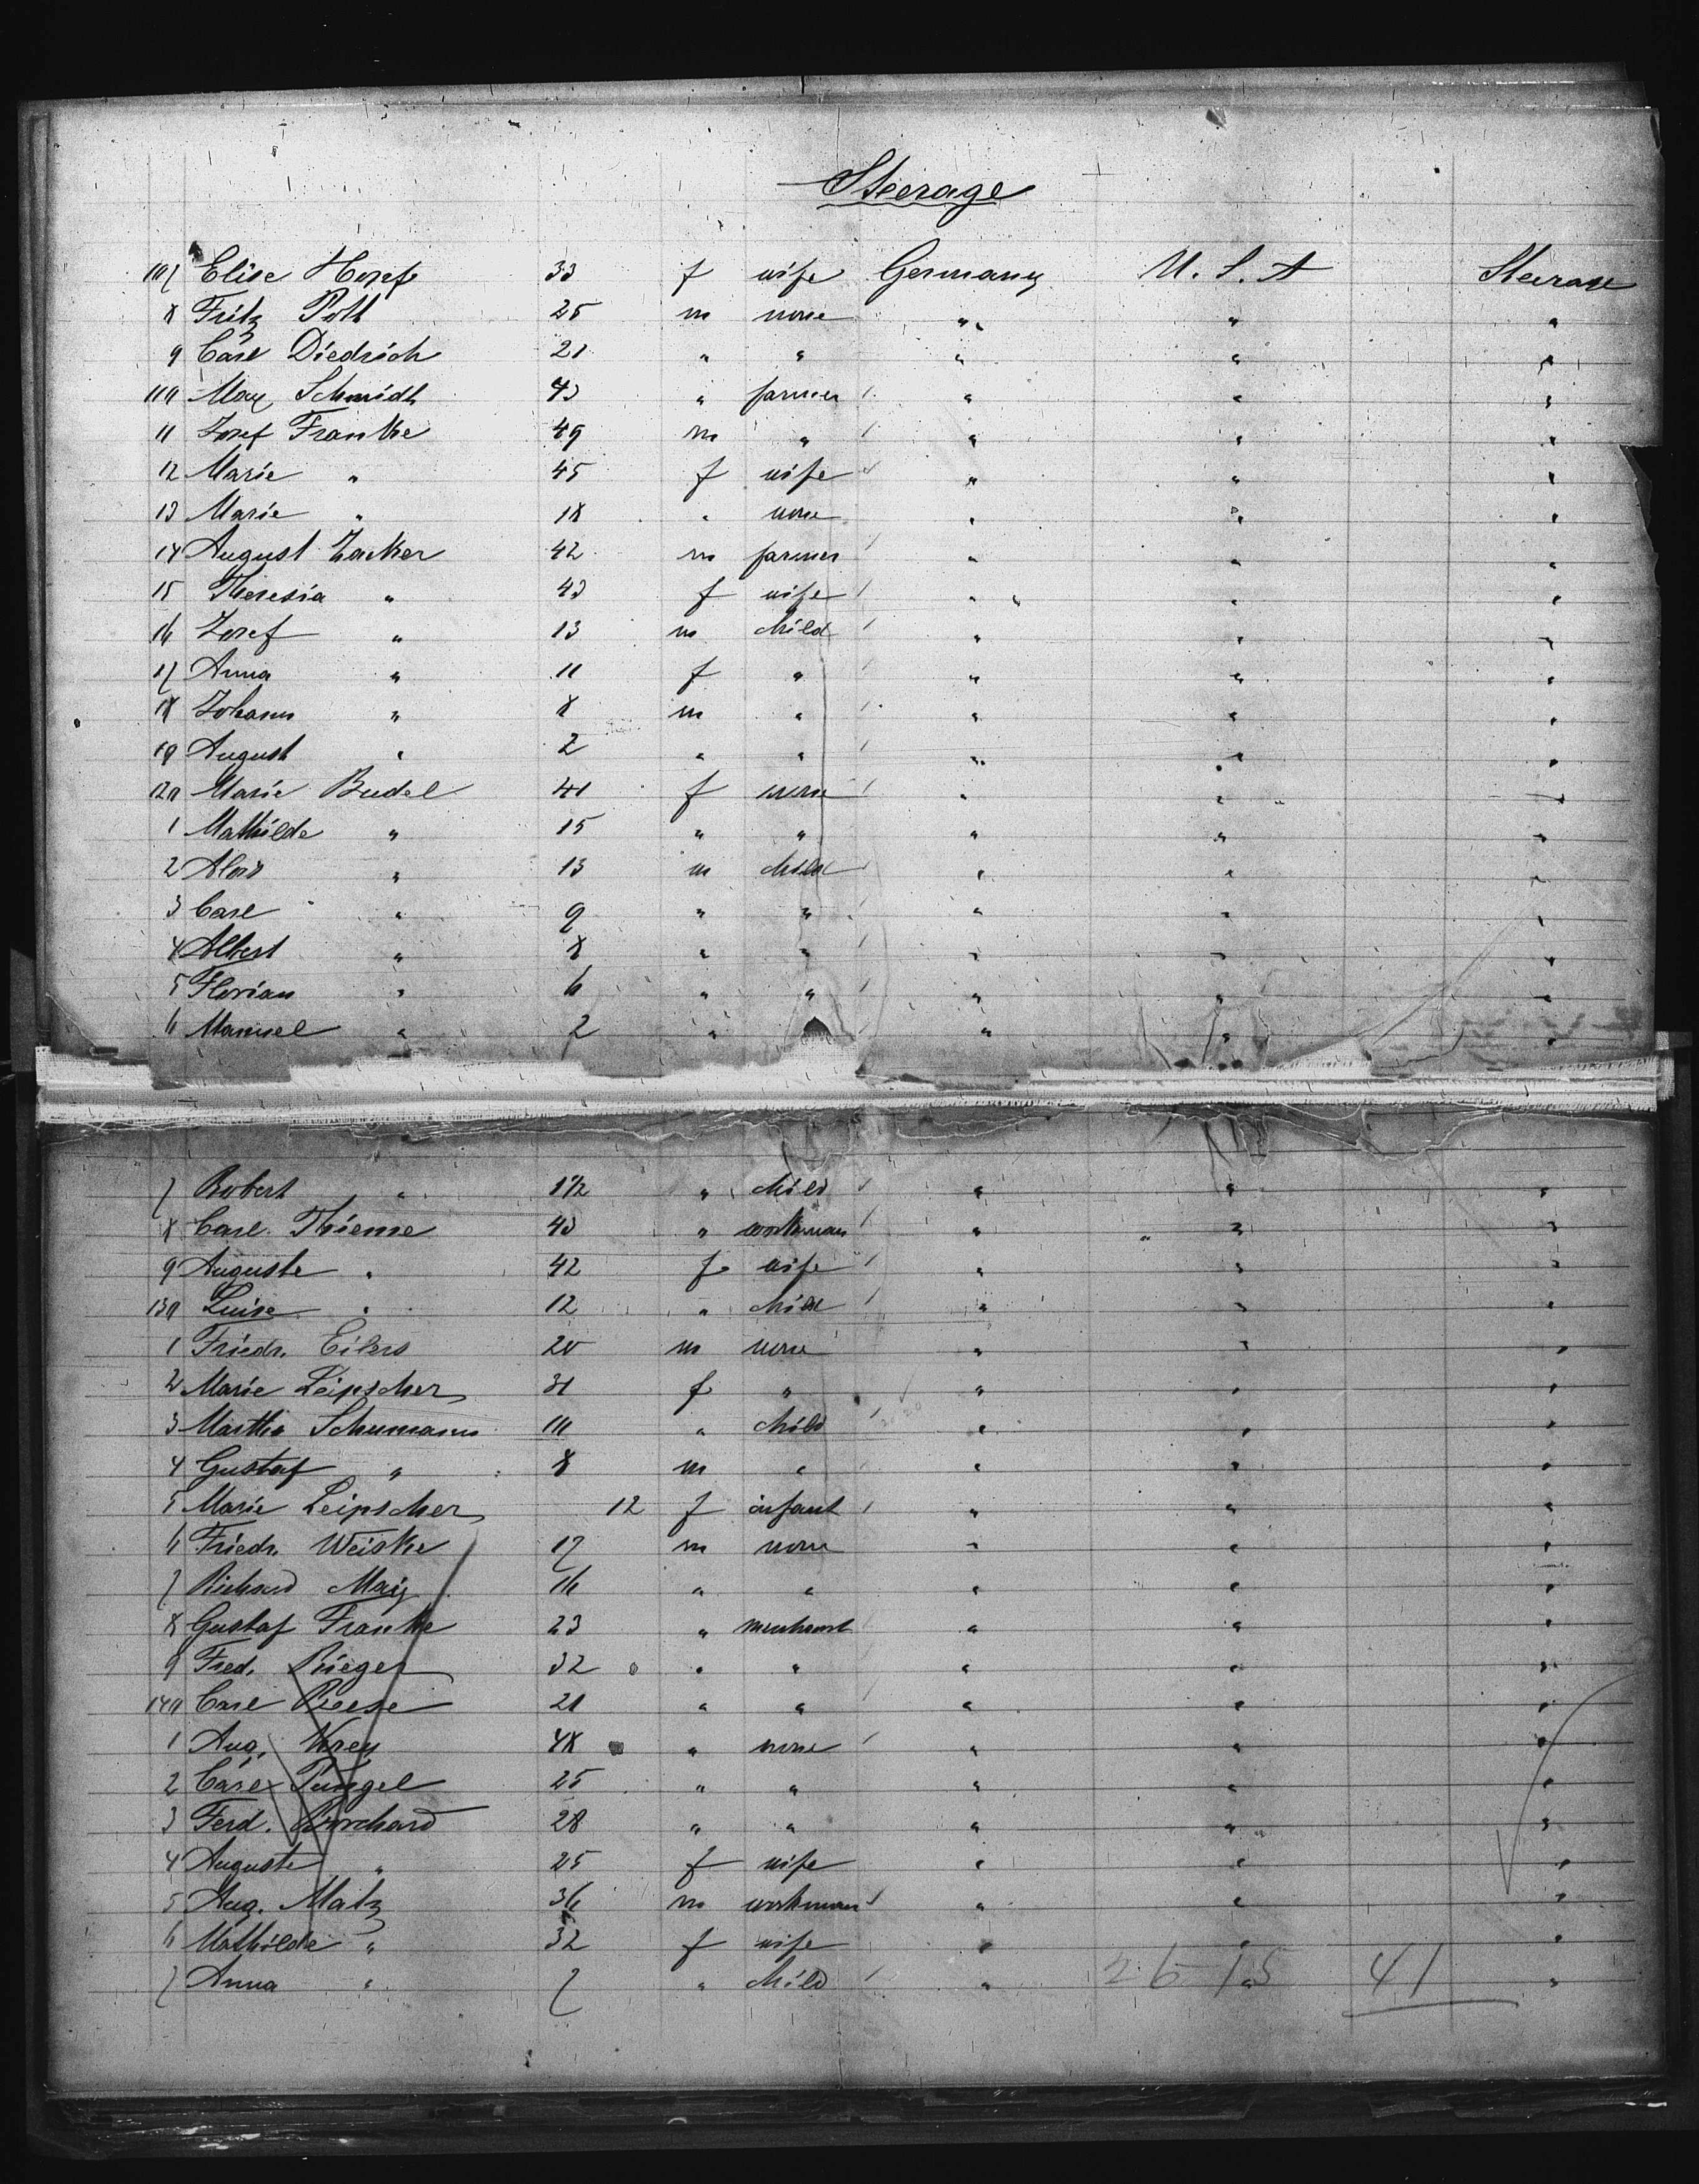 Steerage
107 Elise Hopf 33 f wife Germany U. S. A Steerage
8 Fritz Pott 25 m none " " "
9 Carl Diedrich 21 " " " " "
110 Max Schmidt 43 " farmer " " "
11 Josef Franke 49 m " " " "
12 Marie " 45 f wife " " "
13 Marie " 18 " none " " "
14 August Zacker 42 m farmer " " "
15 Theresia " 43 f wife " " "
16 Josef " 13 m child " " "
17 Anna " 11 f " " " "
18 Johann " 8 m " " " "
19 August " 2 " " " " "
120 Marie Budel 41 f none " " "
1 Mathilde " 15 " " " " "
2 Alois " 13 m child " " "
3 Carl " 9 " " " " "
4 Albert " 8 " " " " "
5 Florian " 6 " " " " "
6 Manuel " 2 " " " "
7 Robert " 1 1/2 " child " " "
8 Carl Thieme 43 " workman " " "
9 Auguste " 42 f wife " " "
130 Luise " 12 " child " " "
1 Friedr. Eilers 20 m none " " "
2 Marie Leipscher 31 f " " " "
3 Martha Schumann 10 " child " " "
4 Gustaf " 8 m " " " "
5 Marie Leipscher 12 f infant " " "
6 Friedr. Weiske 17 m none " " "
7 Richard May 16 " " " " "
8 Gustaf Franke 23 " merchant " " "
9 Fred. Rieger 32 " " " " "
140 Carl Reese 21 " " " " "
1 Aug. Krey 48 " none " " "
2 Carl Pungel 25 " " " " "
3 Ferd. Borchard 28 " " " " "
4 Auguste " 25 f wife " " "
5 Aug. Matz 36 m workman " " "
6 Mathilde " 32 f wife " " "
7 Anna " 7 " child " " "
26 15 41